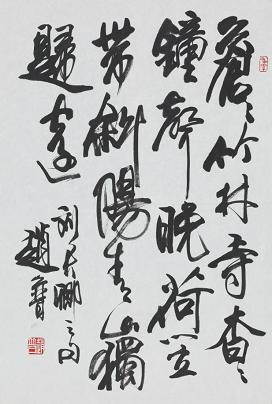 蒼〻竹林寺杳〻
鐘聲晚荷笠
带斜陽青山獨
歸遠
刘長卿之句
趙